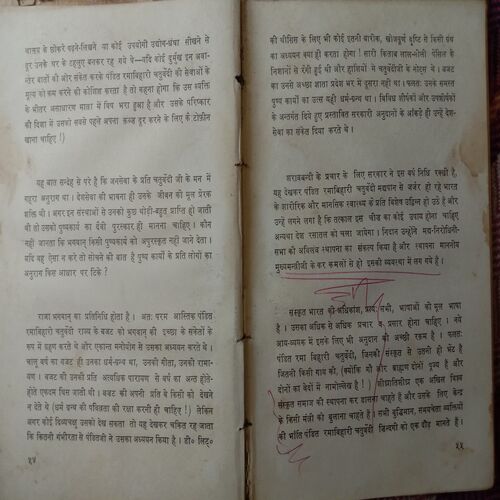 बालग्राम के छोकरे पढ़ने-लिखने या कोई उपयोगी उद्योग-धंधा सीखने से
दूर उनके घर के टहलुए बनकर रह गये थे—यदि कोई दुर्मुख इन अवा-
न्तर बातों की ओर संकेत करके पंडित रमाबिहारी चतुर्वेदी की सेवाओं के
मूल्य को कम करने की कोशिश करता है तो कहना होगा कि उस व्यक्ति
के भीतर असाधारण मात्रा में विष भरा हुआ है और उसके परिष्कार
की दिशा में उसको सबसे पहले अपना क़ब्ज़ दूर करने के लिए क्रै टोफ़ीन
खाना चाहिए !)
यह बात सन्देह से परे है कि जनसेवा के प्रति चतुर्वेदी जी के मन में
गहरा अनुराग था । देशसेवा की भावना ही उनके जीवन की मूल प्रेरक
शक्ति थी । अगर इन संस्थाओं से उनको कुछ थोड़ी-बहुत प्राप्ति हो जाती
थी तो उसको पुण्यकार्य का दैवी पुरस्कार ही मानना चाहिए । कौन
नहीं जानता कि भगवान् किसी पुण्यकार्य को अपुरस्कृत नहीं जाने देता ।
यदि यह ऐसा न करे तो सोचने की बात है पुण्य कार्यों के प्रति लोगों का
अनुराग किस आधार पर टिके ?
राजा भगवान् का प्रतिनिधि होता है । अतः परम आस्तिक पंडित
रमाबिहारी चतुर्वेदी राज्य के बजट को भगवान् की इच्छा के संकेतों के
रूप में ग्रहण करते थे और एकान्त मनोयोग से उसका अध्ययन करते थे ।
चालू वर्ष का बजट ही उनका धर्म-ग्रन्थ था, उनकी गीता, उनकी रामा-
यण । बजट की उनकी प्रति अत्यधिक पारायण से वर्ष का अन्त होते-
होते एकदम घिस जाती थी । बजट की अपनी प्रति वे किसी को देखने
न देते थे (धर्म ग्रन्थ की पवित्रता की रक्षा करनी ही चाहिए !) लेकिन
अगर कोई दिव्यचक्षु उसको देख सकता तो यह देखकर चकित रह जाता
कि कितनी गंभीरता से पंडितजी ने उसका अध्ययन किया है । डी० लिट्०
५४
की थीसिस के लिए भी कोई इतनी बारीक, खोजपूर्ण दृष्टि से किसी ग्रंथ
का अध्ययन क्या ही करता होगा ! सारी किताब लाल-नीली पेंसिल के
निशानों से रंगी हुई थी और हाशियों में चतुर्वेदीजी के नोट्स थे । बजट
का उनसे अच्छा ज्ञाता प्रदेश भर में दूसरा नहीं था । फलतः उनके समस्त
पुण्य कार्यों का उत्स यही धर्म-ग्रन्थ था । विविध शीर्षकों और उपशीर्षकों
के अन्तर्गत दिये हुए प्रस्तावित सरकारी अनुदानों के आँकड़े ही उन्हें देश-
सेवा का संकेत दिया करते थे ।
शराबबन्दी के प्रचार के लिए सरकार ने इस वर्ष निधि रक्खी है,
यह देखकर पंडित रमाबिहारी चतुर्वेदी मद्यपान से जर्जर हो रहे भारत
के शारीरिक और मानसिक स्वास्थ्य के प्रति विशेष उद्विग्न हो उठे हैं और
उन्हें लगने लगा है कि तत्काल इस चीज़ का कोई उपाय होना चाहिए
अन्यथा देश रसातल को चला जायेगा । निदान उन्होंने मद्य-निरोधिनी-
सभा की अविलंब स्थापना का संकल्प किया है और स्थापना माननीय
मुख्यमन्त्रीजी के कर कमलों से हो इसकी व्यवस्था में लग गये हैं ।
संस्कृत भारत की अधिकांश, प्रायः सभी, भाषाओं की मूल भाषा
है । उसका अधिक से अधिक प्रचार व प्रसार होना चाहिए । नये
आय-व्ययक में इसके लिए भी अनुदान की अच्छी रक़म है । फलतः
पंडित रमा बिहारी चतुर्वेदी, जिनकी संस्कृत से उतनी ही भेंट है
जितनी किसी गाय की, (क्योंकि गौ और ब्राह्मण दोनों पूज्य हैं और
दोनों का वेदों में नामोल्लेख है !) शीघ्रातिशीघ्र एक अखिल विश्व
संस्कृत समाज की स्थापना कर डालना चाहते हैं और उसके लिए केन्द्र
के किसी मंत्री को बुलाना चाहते हैं । सभी बुद्धिमान्, समयचेता व्यक्तियों
की भाँति पंडित रमाबिहारी चतुर्वेदी ज़िन्दगी को एक दौड़ मानते हैं ।
५५